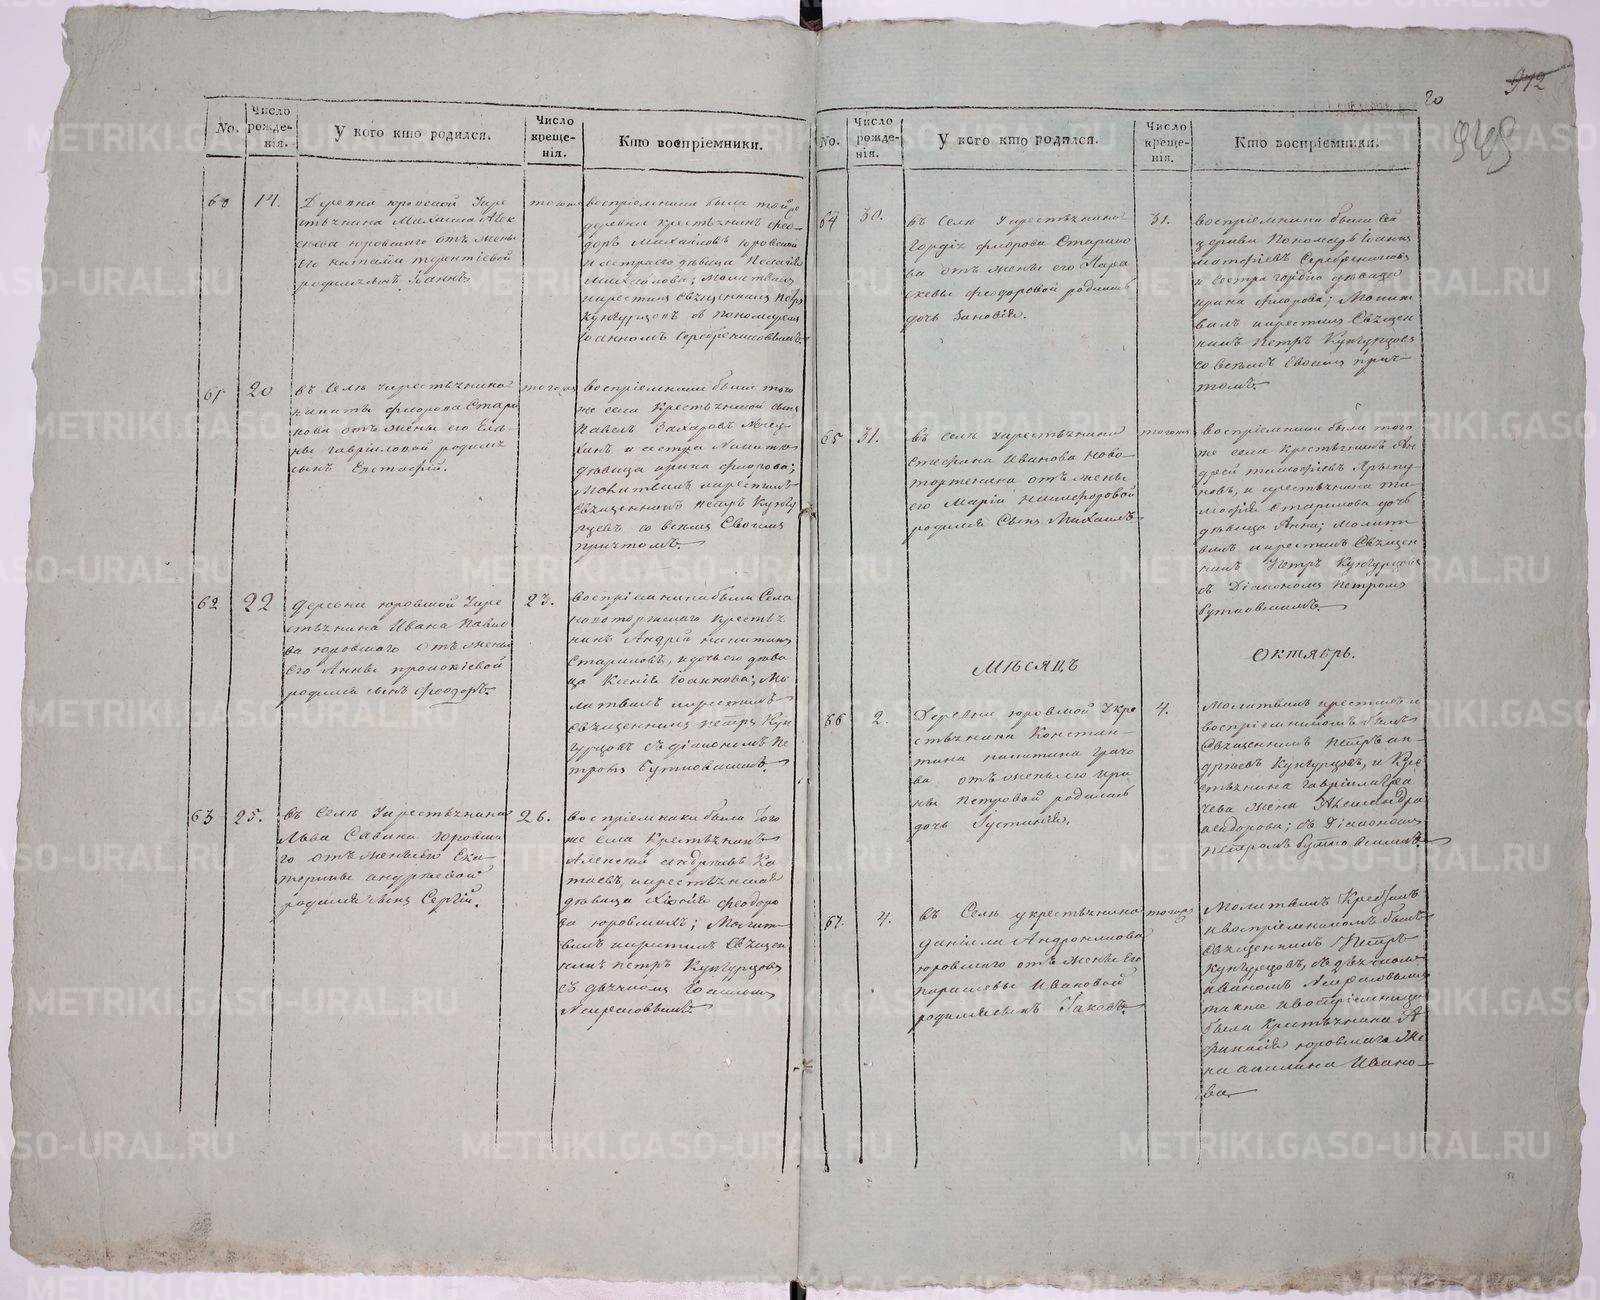 972
20
943
No.
Число рожде-нія.
У кого кто родился.
Число креще-нія.
Кто воспріемники.
60
14.
Деревни юровской Укре
стьянина Михаила Алек
юровскаго отъ жены
его наталіи терентіевой
родился Іоаннъ
тогожъ
воспріемники были тойже
деревни крестьянинъ фео-
доръ Михайловъ юровской
дѣвица Пелагія
Михайлова; Молитвилъ
икрестилъ Священникъ Петръ
кунгурцевъ съ пономаремъ
Іоанномъ Серебрениковымъ.
61
20
въ Селѣ укрестьянина
никиты флорова Стари
кова отъ жены его Еле-
ны гавріиловой родился
сынъ Евстафій.
тогожъ
воспріемники были того
же села Крестьянской сынъ
Павелъ Захаровъ
и сестра Никиты
дѣвица ирина флорова;
Молитвилъ икрестилъ
Священникъ Петръ Кунгу
рцевъ со всѣмъ Своимъ
причтомъ.
62
22
деревни юровской Укре
стьянина Ивана Павло
ва юровскаго отъ жены
его Анны прокопіевой
родился сынъ феодоръ.
23.
воспріемники были Села
новоторжскаго крестья
нинъ Андрей никитинъ
Стариковъ, идочь его дѣви
ца Ксенія Іоаннова; Мо
литвилъ икрестилъ
Священникъ Петръ Кун
гурцовъ съ діакономъ Пе
тромъ Бутковскимъ.
63
25.
въ Селѣ Укрестьянина
Льва Савина Юровска
го отъ жены его Ека-
терины андреевой
родился сынъ Сергій.
26.
воспріемники были того
же села Крестьянинъ
Алексѣй андреевъ Ко
таевъ, икрестьянская
дѣвица феодоро
ва юровскихъ; Молит-
вилъ икрестилъ Священ
никъ Петръ Кунгурцовъ
съ дьячкомъ
No.
Число рожде-нія.
У кого кто родился.
Число креще-нія.
Кто воспріемники.
64
30.
въ Селѣ Укрестьянина
Гордія флорова Старико
ва отъ жены его Пара
скевы феодоровой родилась
дочь Зиновія.
31.
воспріемники были Сей
церкви Пономарь Іоаннъ
матфіевъ Серебрениковъ
и сестра Гордія дѣвица
ирина флорова; Молит
вилъ икрестилъ Священ
никъ Петръ Кунгурцовъ
со всѣмъ Своимъ прич-
томъ.
65
31.
въ Селѣ укрестьянина
Стефана Иванова Ново-
торженина отъ жены
его Маріи никифоровой
родился Сынъ Михаилъ.
тогожъ
воспріемники были того
же села крестьянинъ Ан
дрей тимофіевъ
новъ, и крестьянина ти
мофія Старикова дочь
дѣвица Анна; молит-
вилъ икрестилъ Священ
никъ Петръ Кунгурцовъ
съ Діакономъ петромъ
Бутковскимъ.
Мѣсяцъ
Октябрь.
66
2.
Деревни юровской Укре
стьянина Констан-
тина никитина Грачо
ва отъ жены его Ири
ны Петровой родилась
дочь Іустинія.
4.
Молитвилъ крестилъ и
воспріемникомъ былъ
Священникъ Петръ ан-
дреевъ Кунгурцовъ, и Кре
стьянина Гавріила Гра
чева жена Александра
; съ Діакономъ
петромъ Бутковскимъ.
67.
4.
въ Селѣ укрестьянина
Даніила Андроникова
юровскаго отъ жены его
параскевы Ивановой
родился сынъ Іаковъ.
тогожъ
Молитвилъ Крестилъ
ивоспріемникомъ былъ
Священникъ Петръ
Кунгурцовъ, съ дьячкомъ
иваномъ
также ивоспріемницей
была Крестьянина А
фанасія юровскаго Же
на акилина Ивано-
ва.